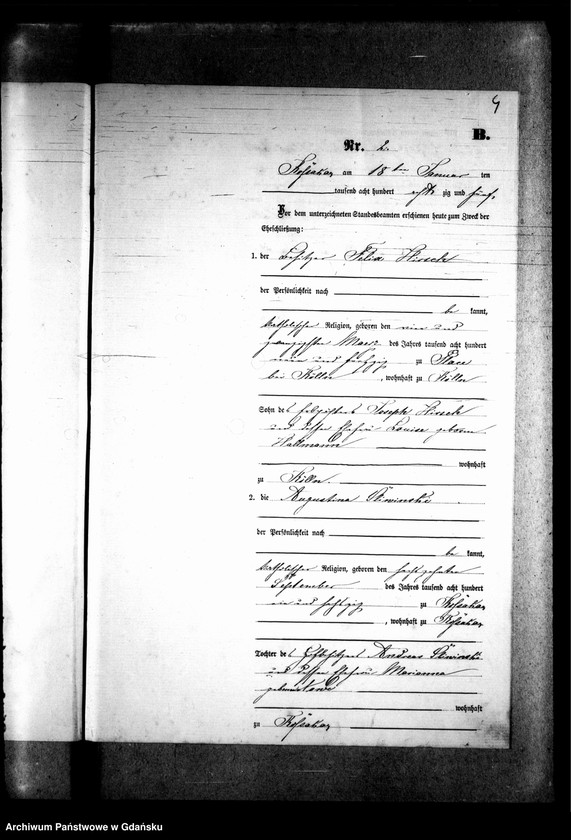 9
B.
Nr. 2.
am 18ten Januar ten
tausend acht hundert acht zig und fünf,
Vor dem unterzeichneten Standesbeamten erschienen heute zum Zweck der
Eheschließung:
1. der Besitzer Felix Hirsch
der Persönlichkeit nach
be kannt,
katholischer Religion, geboren den vier und
zwanzigsten März des Jahres tausend acht hundert
neun und fünfzig zu
bei Kölln, wohnhaft zu Kölln
Sohn des Joseph Hirsch
und dessen Ehefrau Louise geborne
Hallmann
wohnhaft
zu Kölln.
2. die Augustina
der Persönlichkeit nach
be kannt,
katholischer Religion, geboren den sechszehnten
September des Jahres tausend acht hundert
ein und sechzig zu
, wohnhaft zu
Tochter des Andreas
und dessen Ehefrau Marianna
geborene
wohnhaft
zu
Archiwum Państwowe w Gdańsku